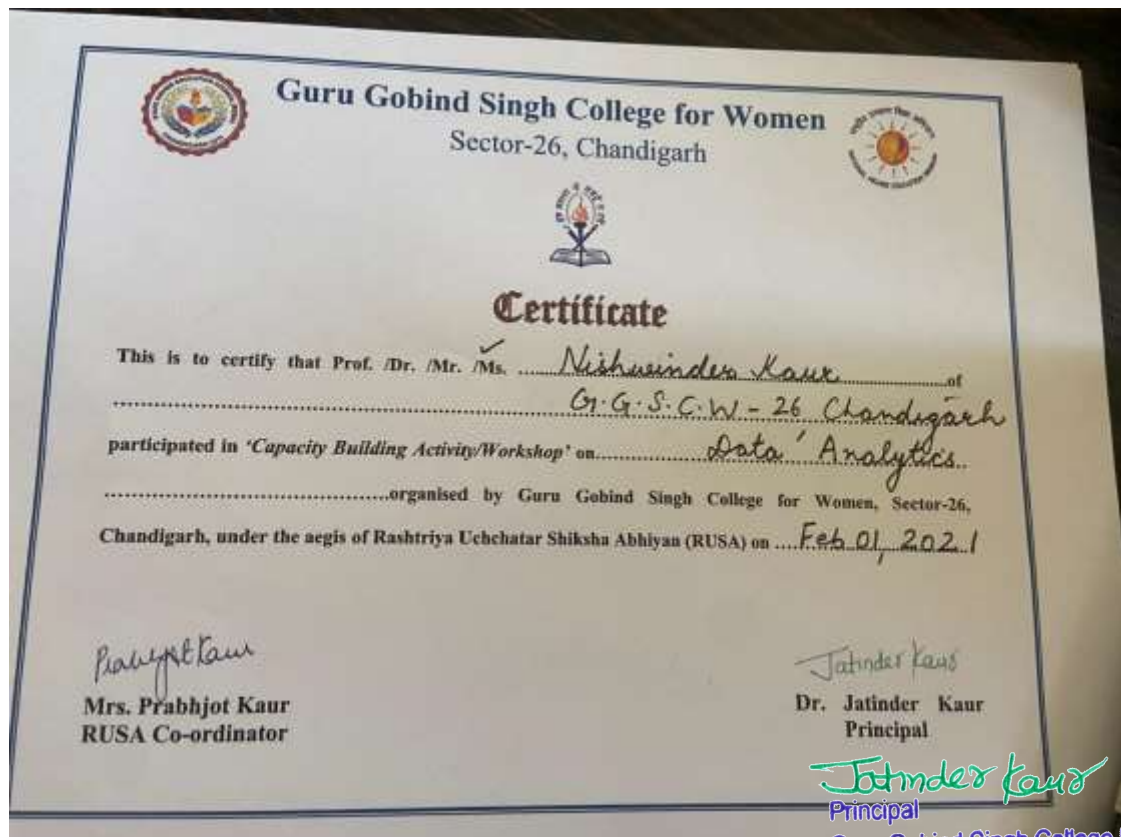 Guru Gobind Singh College for Women
Sector-26, Chandigarh
Certificate
This is to certify that Prof. /Dr. /Mr. /Ms. ..... Nishwinder Kaur ..................of
............................................................ G.G.S.C.W - 26 Chandigarh
participated in 'Capacity Building Activity/Workshop' on.................... Data Analytics..
..........................................organised by Guru Gobind Singh College for Women, Sector-26,
Chandigarh, under the aegis of Rashtriya Uchchatar Shiksha Abhiyan (RUSA) on ....Feb 01, 2021
Prabhjot Kaur
Mrs. Prabhjot Kaur
RUSA Co-ordinator
Jatinder Kaur
Dr. Jatinder Kaur
Principal
Jatinder Kaur
Principal
Guru Gobind Singh College